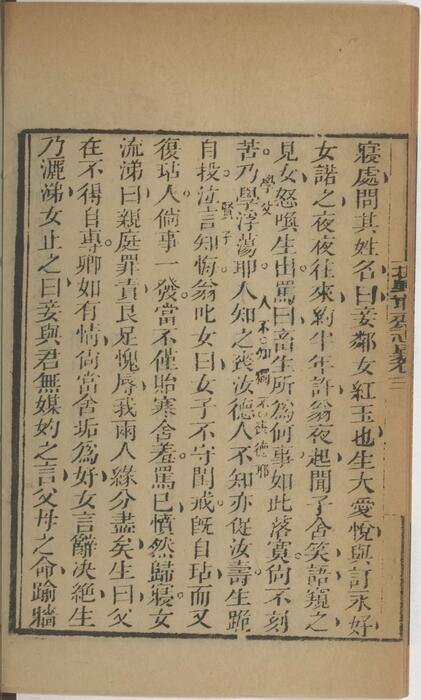 寢處問其姓名曰妾鄰女紅玉也生大愛悅與訂永好
女諾之夜夜往來約半年許翁夜起聞子舍笑語窺之
見女怒喚生出罵曰畜生所爲何事如此落寞尙不刻
苦乃學浮蕩耶人知之喪汝德人不知亦促汝壽生跪
人不知獨不喪德耶
自投泣言知悔翁叱女曰女子不守閨戒旣自玷而又
復玷人倘事一發當不僅貽寒舍羞罵已憤然歸寢女
流涕曰親庭罪責良足愧辱我兩人緣分盡矣生曰父
在不得自專卿如有情尙當含垢爲好女言辭決絕生
乃灑涕女止之曰妾與君無媒妁之言父母之命踰牆